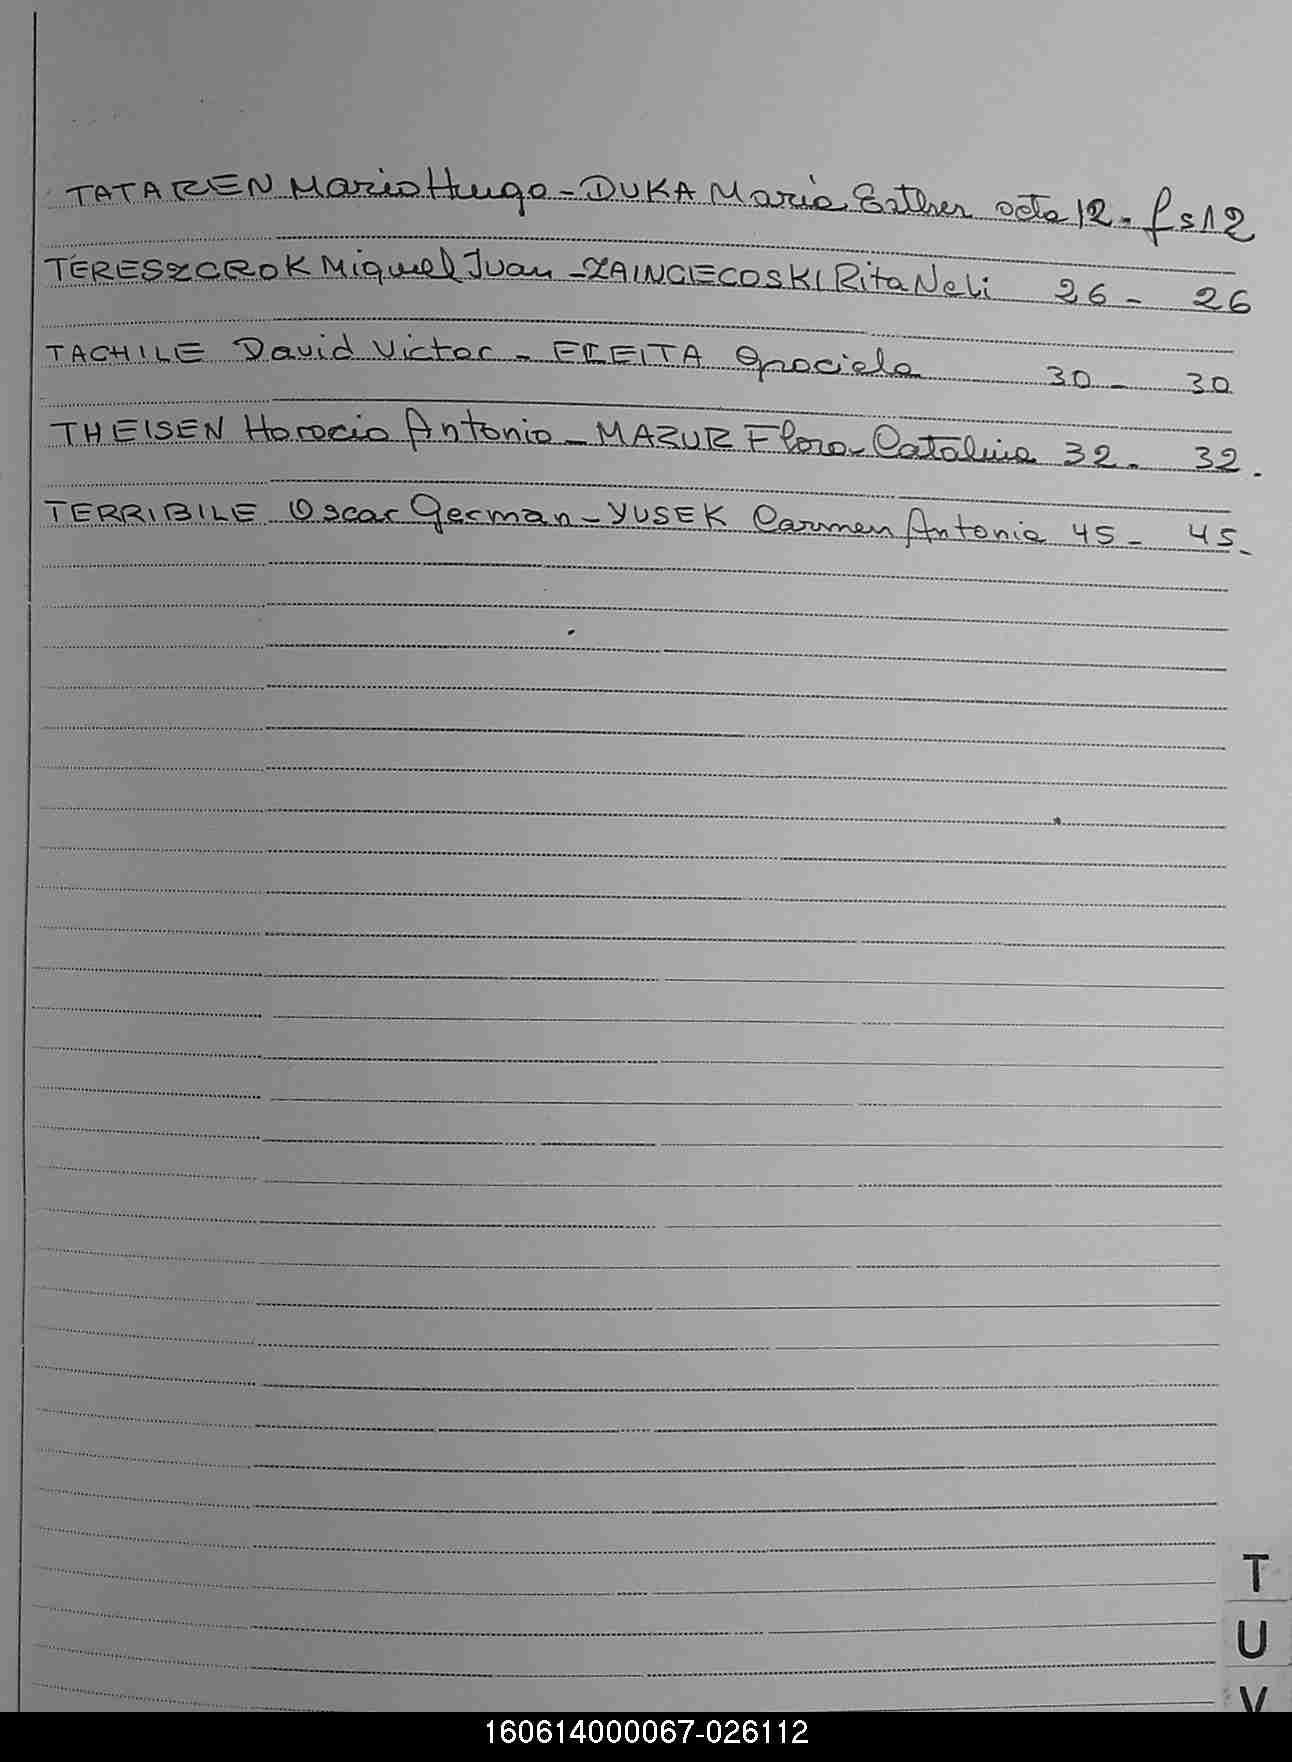 TATAREN Mario Hugo - DUKA María Esther acta 12 - fs 12
TERESZCROK Miguel Juan - ZAINGECOSKI Rita Neli 26 - 26
TACHILE David Victor - FLEITA Graciela 30 - 30
THEISEN Horacio Antonio - MAZUR Flora Catalina 32 - 32.
TERRIBILE Oscar German - YUSEK Carmen Antonia 45 - 45.
T
U
V
160614000067-026112